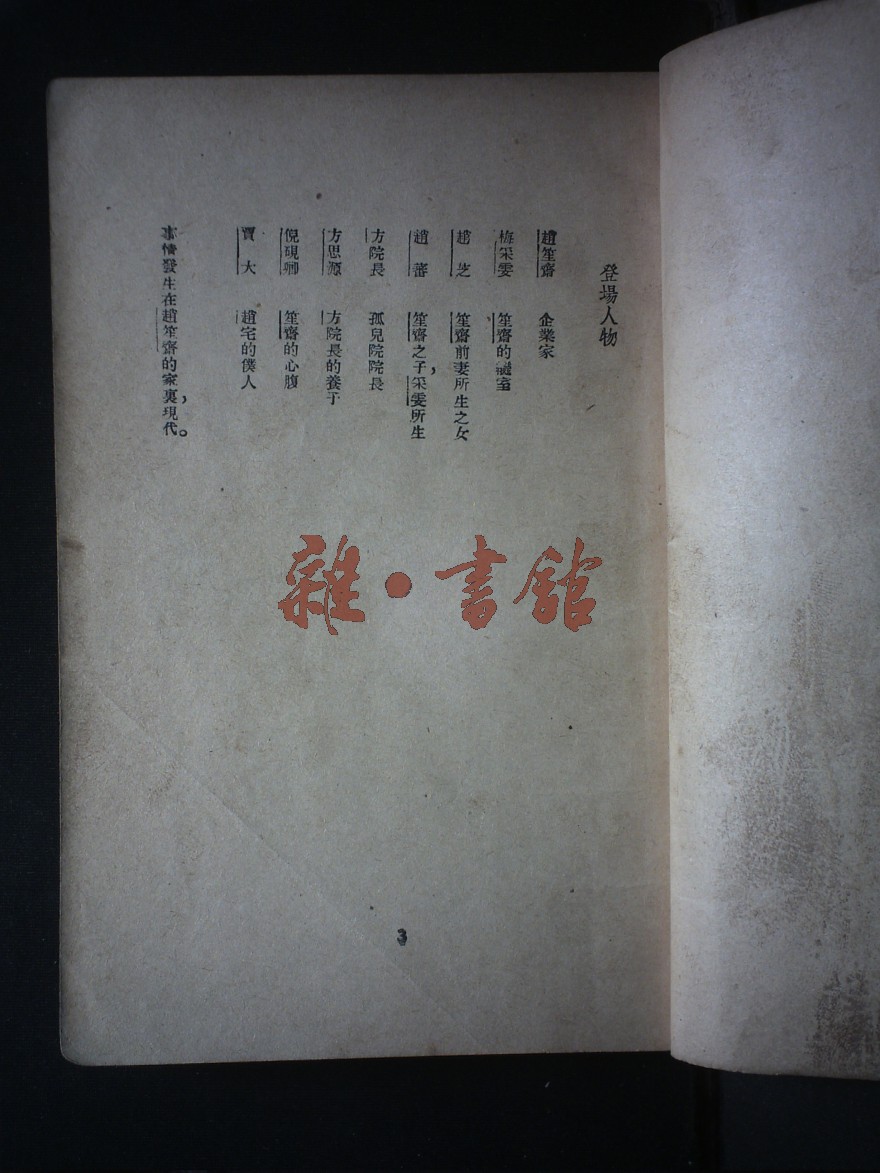 登場人物
趙笙齋　企業家
梅采雯　笙齋的繼室
趙　芝　笙齋前妻所生之女
趙　蕃　笙齋之子，采雯所生
方院長　孤兒院院長
方思源　方院長的養子
倪硯卿　笙齋的心腹
賈　大　趙宅的僕人
事情發生在趙笙齋的家裏，現代。
雜·書館
3